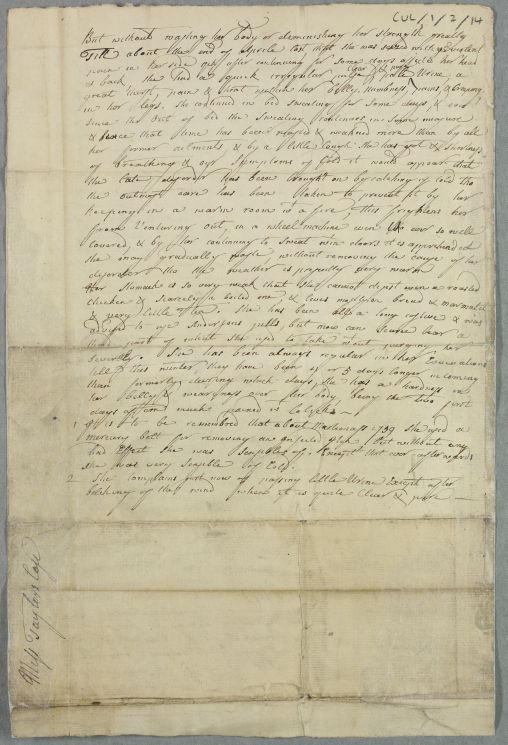 CUL/1/2/14
But without wasting her body or deminishing her strength greatly
Till about the end of Aprile last that she was seized with a violent
pain in her side and after continuing for some days affected her head
& back she had a quick irregular pulse pale Urine, a
great thirst, pain & heat within her belly, numbness, pains &
in her legs. She continued in bed sweating for some days, & ever
since she Out of bed the Sweating continues in some measure
& since that time has been wasted & weakned more than by all
her former ailments & by a little Cough she has got & shortness
of Breathing & oyr Symptoms of Cold it would appear that
the Late disorder has been brought on by catching of cold tho
the outmost care has been taken to prevent it by her
keeping in a warm room wt a fire, this frightens her
from Venturing out, in a wheel machine even tho ever so well
covered, & by her continuing to sweat within doors it is apprehended
she may gradually waste, without removing the cause of her
disorder tho the weather is presently very warm
Her Stomach is so very weak that she cannot digest even a roasted
chicken & scarcely a boiled one & lives mostly on bread & marmalad
& very little Tea. She has been also long costive & was
advised to use Andersons pills but now can scarce bear a
third part of what she used to take without purging her
severely. She has been always regular in her Evacuations
till this winter they have been 4 or 5 days longer in coming
than formerly, during which days, she has a hardness in
her belly & weariness over her body, being the two first
days often much pained wt Colicks
1 It is to be remembered that about Martinmass 1739 she used a
mercury belt for removing an But without any
bad Effect she was sensible of, Except that ever afterwards
she was very sensible of Cold.
2 She complains just now of passing little Urine Except after
belching of that wind when it is quite Clear & pure
Miss Taylors Case